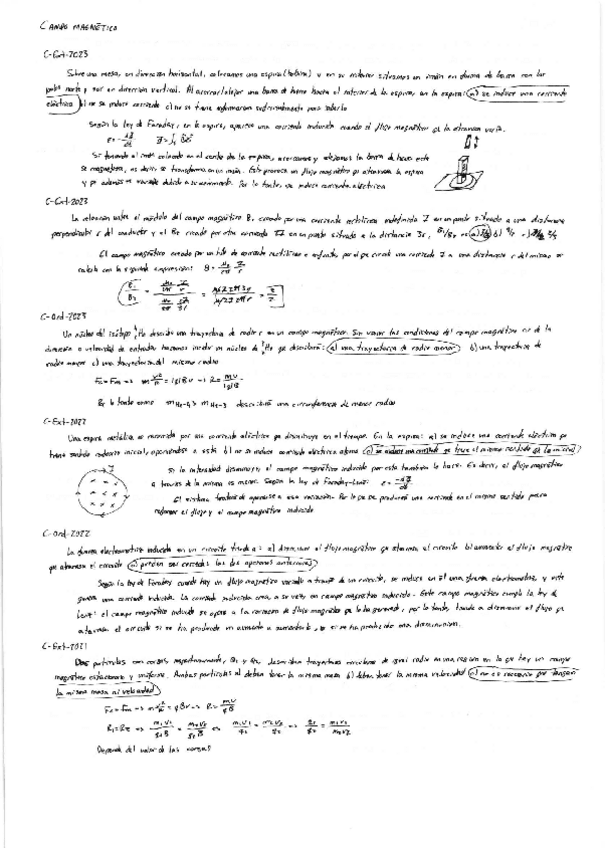 CAMPO MAGNÉTICO
C-Ext-2023
Sobre una mesa, en dirección horizontal, colocamos una espira (bobina) y en su interior situamos un imán en forma de barra con sus
polos norte y sur en dirección vertical. Al acercar/alejar una barra de hierro hasta el interior de la espira, en la espira: a) se induce una corriente
eléctrica b) no se induce corriente c) no se tiene información suficiente para saberlo
Según la ley de Faraday, en la espira, aparece una corriente inducida cuando el flujo magnético que la atraviesa varía.
Si tenemos el imán colocado en el centro de la espira, acercamos y alejamos la barra de hierro este
se magnetiza, es decir se transforma en un imán. Este provoca un flujo magnético que atraviesa la espira
y que además es variable debido a su movimiento. Por lo tanto, se induce corriente eléctrica
C-Ext-2023
La relación entre el módulo del campo magnético B₁ creado por una corriente rectilínea indefinida I en un punto situado a una distancia
perpendicular r del conductor y el B₂ creado por otra corriente 2I en un punto situado a la distancia 3r, B₁/B₂ es:
El campo magnético creado por un hilo de corriente rectilíneo e infinito, por el que circula una corriente I a una distancia r del mismo se
calcula con la siguiente expresión: B = μ₀/2π I/r
C-Ord-2023
Un núcleo del isótopo ⁴₂He describe una trayectoria de radio r en un campo magnético. Sin variar las condiciones del campo magnético ni de la
dirección o velocidad de entrada, hacemos incidir un núcleo de ³₂He que describirá: a) una trayectoria de radio menor b) una trayectoria de
radio mayor c) una trayectoria del mismo radio
Por lo tanto como m He-4 > m He-3 describirá una circunferencia de menor radio
C-Ext-2022
Una espira metálica es recorrida por una corriente eléctrica que disminuye en el tiempo. En la espira: a) se induce una corriente eléctrica que
tiene sentido contrario inicial, oponiéndose a esta b) no se induce corriente eléctrica alguna c) se induce una corriente que tiene el mismo sentido de la inicial
Si la intensidad disminuye, el campo magnético inducido por esta también lo hace. Es decir, el flujo magnético
a través de la misma es menor. Según la ley de Faraday-Lenz:
El sistema tenderá a oponerse a esa variación. Por lo que se producirá una corriente en el mismo sentido para
reforzar el flujo y el campo magnético inducido
C-Ord-2022
La fuerza electromotriz inducida en un circuito tiende a: a) disminuir el flujo magnético que atraviesa el circuito b) aumentar el flujo magnético
que atraviesa el circuito c) pueden ser correctas las dos opciones anteriores
Según la ley de Faraday cuando hay un flujo magnético variable a través de un circuito, se induce en él una fuerza electromotriz, y este
genera una corriente inducida. La corriente inducida crea a su vez un campo magnético inducido. Este campo magnético cumple la ley de
Lenz: el campo magnético inducido se opone a la variación de flujo magnético que lo ha generado, por lo tanto, tiende a disminuir el flujo que
atraviesa el circuito si se ha producido un aumento o aumentarlo, si se ha producido una disminución.
C-Ext-2021
Dos partículas con cargas respectivamente, Q₁ y Q₂, describen trayectorias circulares de igual radio en una región en la que hay un campo
magnético estacionario y uniforme. Ambas partículas a) deben tener la misma masa b) deben tener la misma velocidad c) no es necesario que tengan
la misma masa ni velocidad
Depende del valor de las cargas